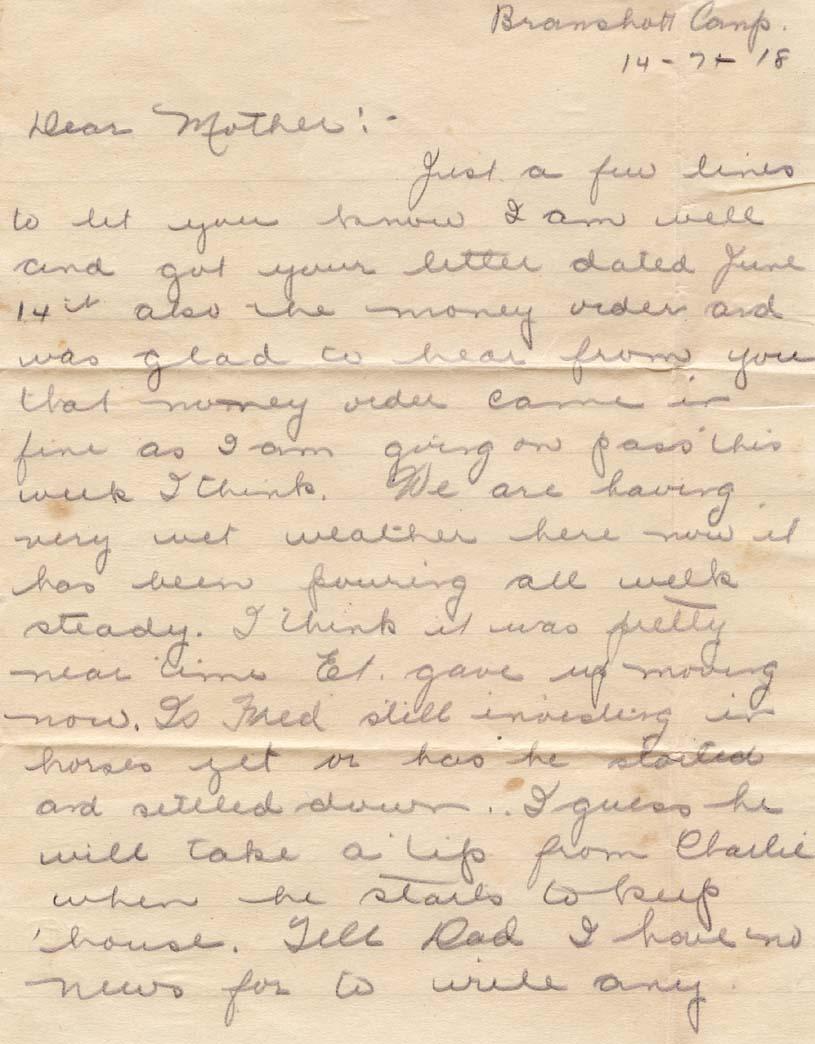 Bramshott Camp.
14-7-18
Dear Mother:-
Just a few lines
to let you know I am well
and got your letter dated June
14th also the money order and
was glad to hear from you
that money order came in
fine as I am going on pass this
week I think. We are having
very wet weather here now it
has been pouring all week
steady. I think it was pretty
near time Et. gave up moving
now. Is Fred still investing in
horses yet or has he started
and settled down.. I guess he
will take a tip from Charlie
when he starts to keep
house. Tell Dad I have no
news for to write any.